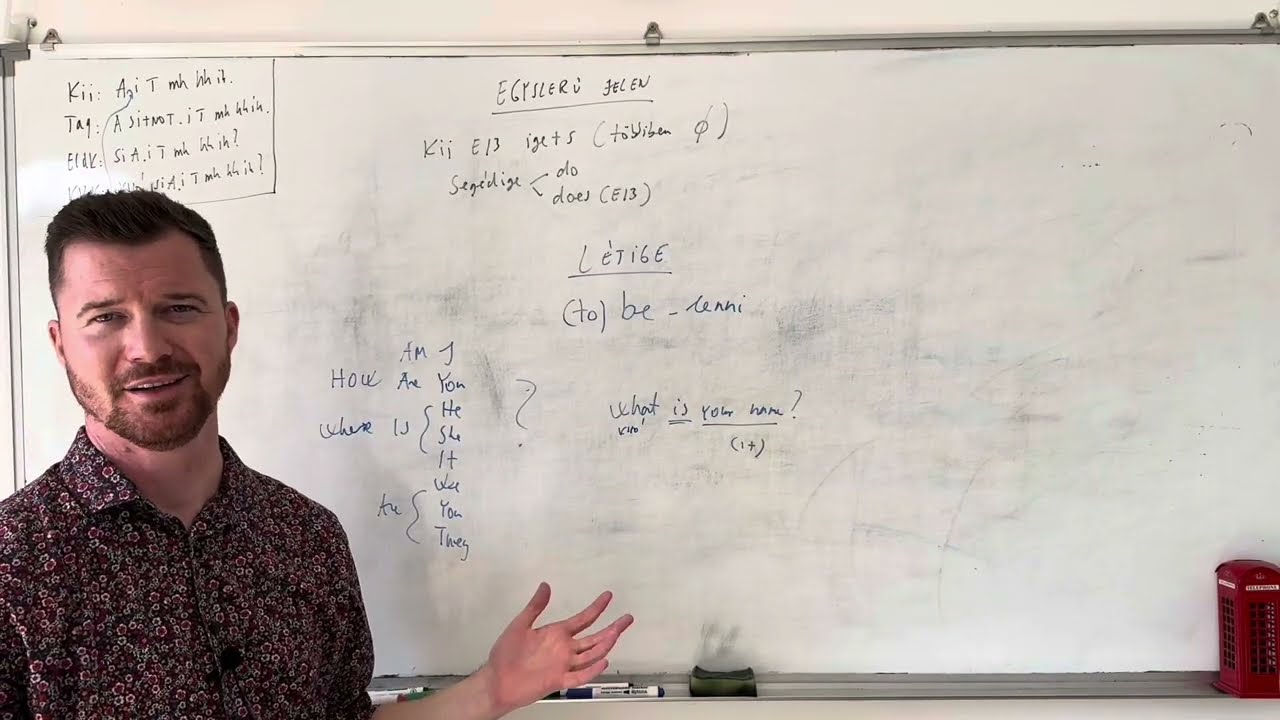 Kij: A,i T mh hh ih.
Tag: A si+NOT.i T mh hh ih.
EldK: si A.i T mh hh ih?
si A.i T mh hh ih?
EGYSZERŰ JELEN
Kij E/3 ige+s (többiben ∅)
Segédige < do
does (E/3)
LÉTIGE
(to) be - lenni
AM I
HOW Are You
where Is { He
She
It
?
We
Are { You
They
what is your name?
kérdő
(it)
TELEPHONE